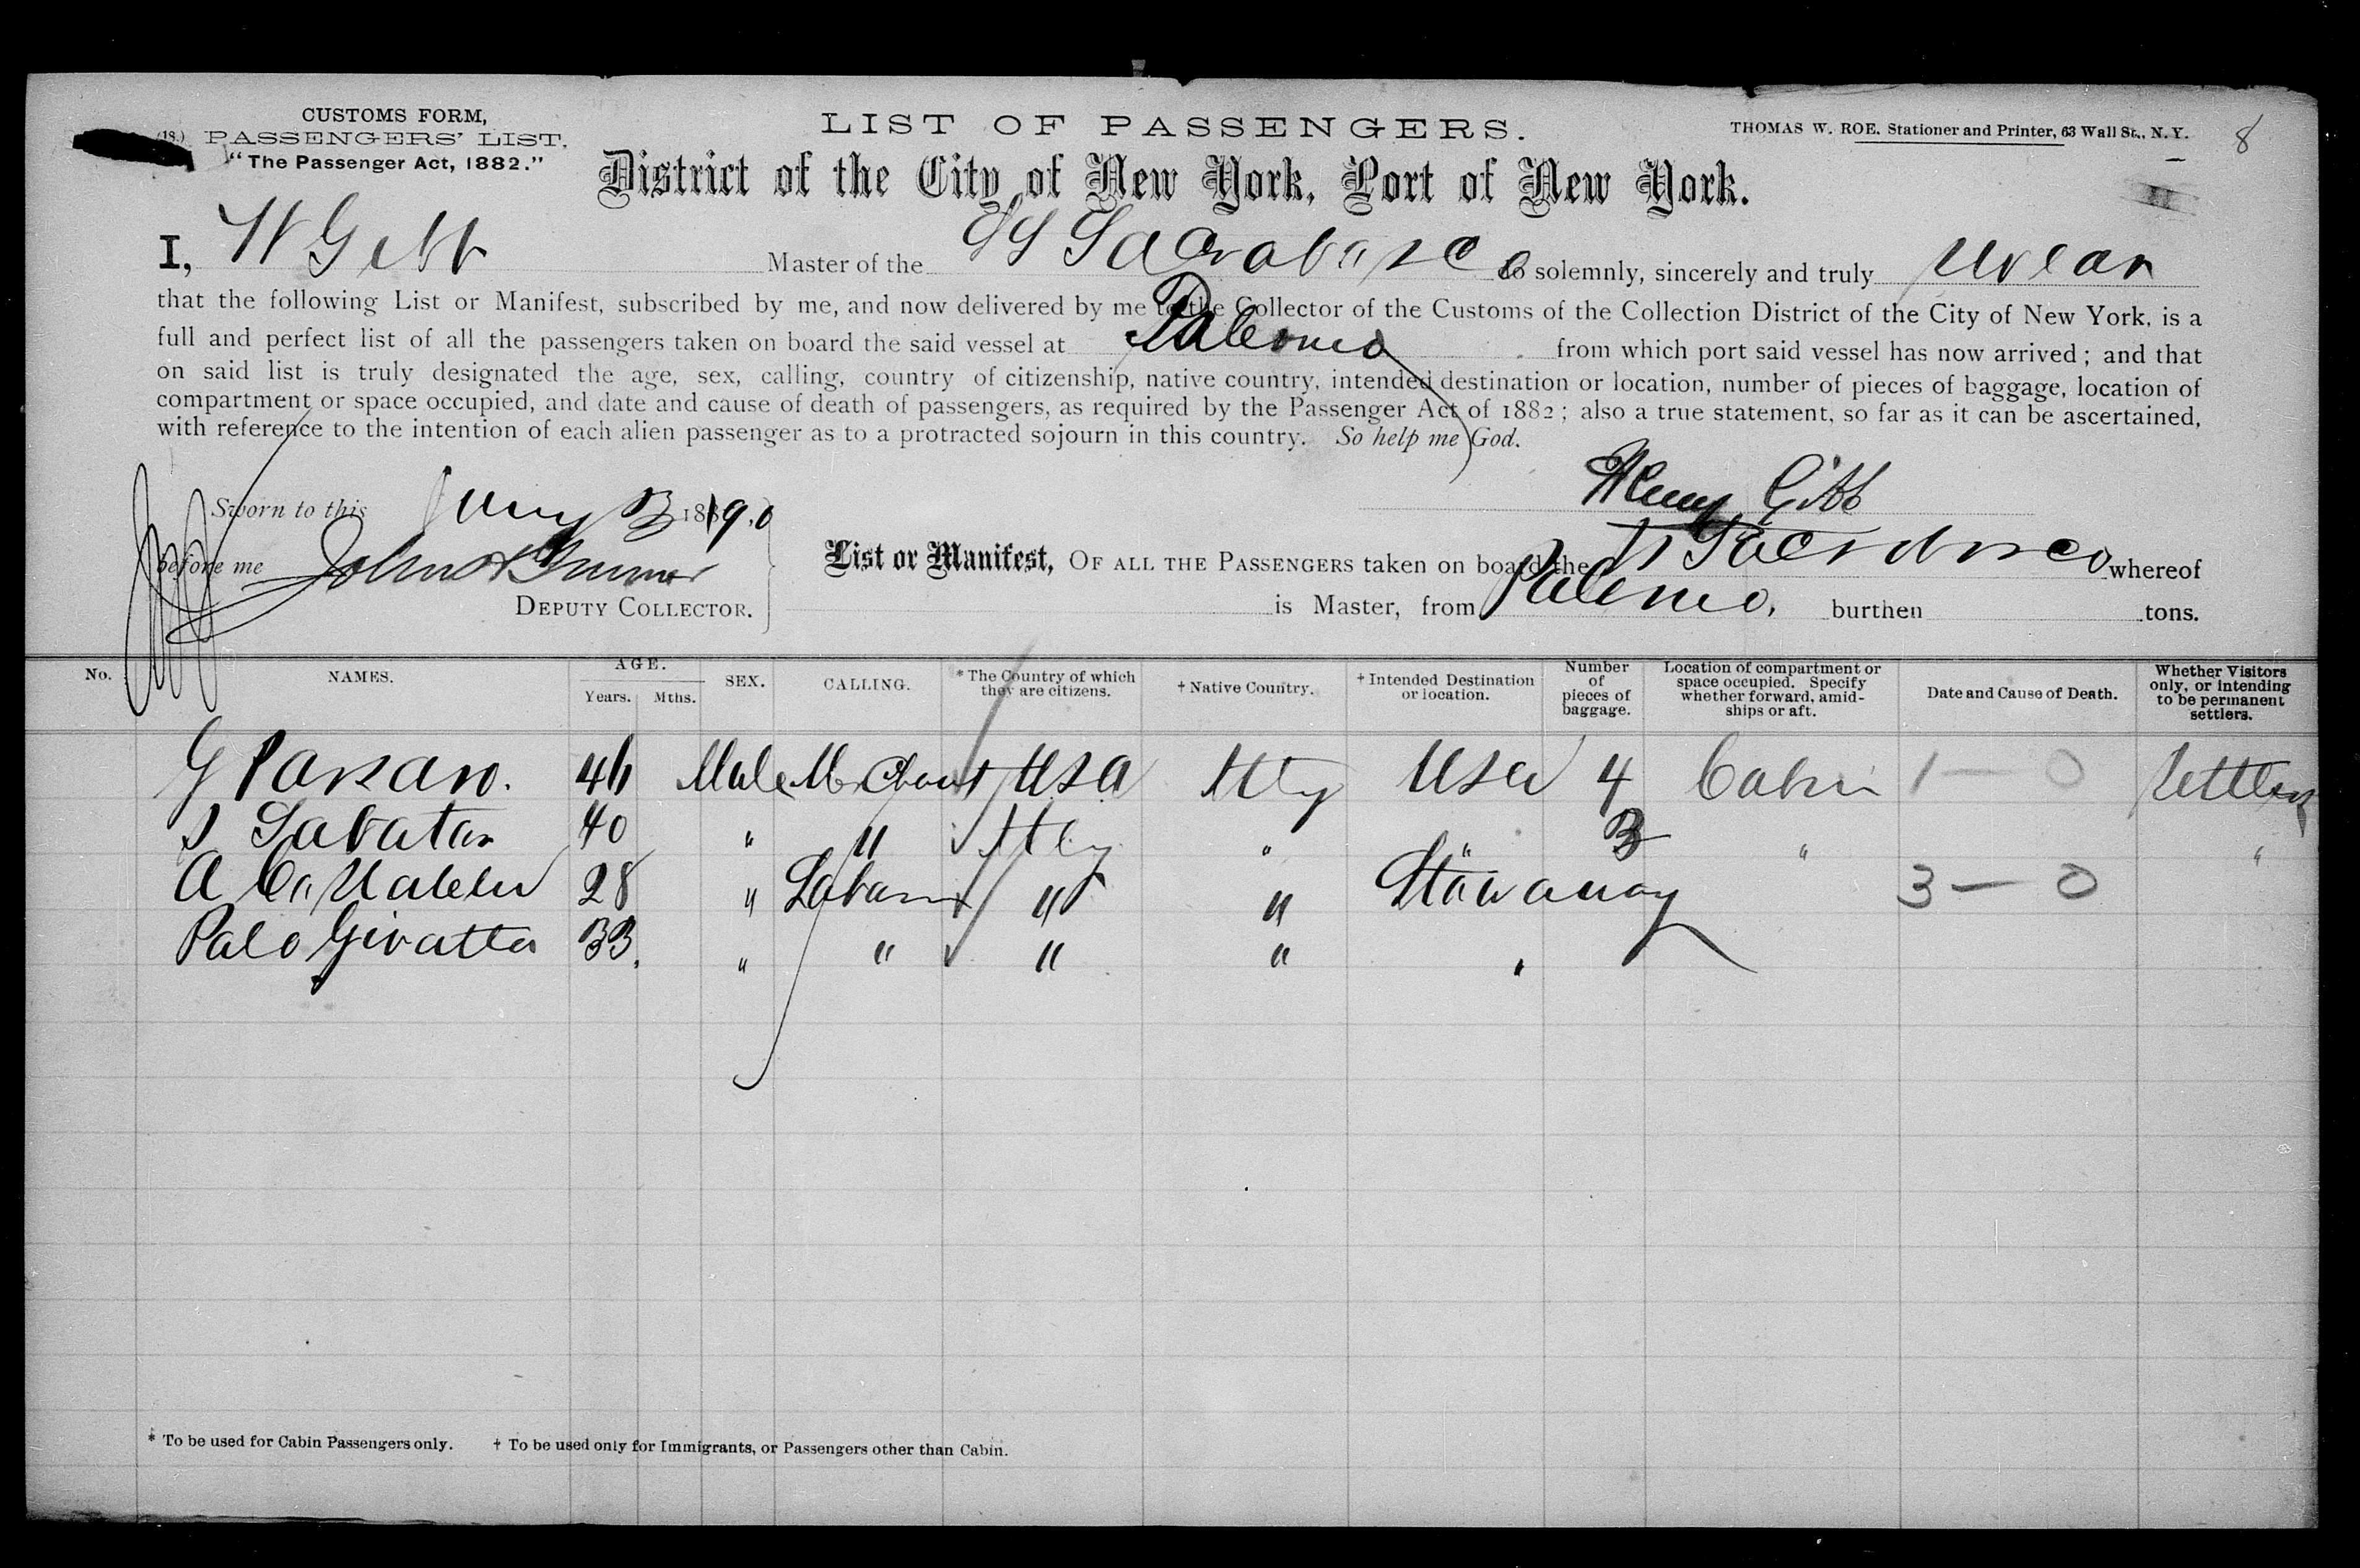 CUSTOMS FORM,
(18.) PASSENGERS' LIST.
"The Passenger Act, 1882."
LIST OF PASSENGERS.
THOMAS W. ROE, Stationer and Printer, 63 Wall St., N.Y.
8
District of the City of New York, Port of New York.
I, W Gibb Master of the SS do solemnly, sincerely and truly swear
that the following List or Manifest, subscribed by me, and now delivered by me to the Collector of the Customs of the Collection District of the City of New York, is a
full and perfect list of all the passengers taken on board the said vessel at Palermo from which port said vessel has now arrived; and that
on said list is truly designated the age, sex, calling, country of citizenship, native country, intended destination or location, number of pieces of baggage, location of
compartment or space occupied, and date and cause of death of passengers, as required by the Passenger Act of 1882; also a true statement, so far as it can be ascertained,
with reference to the intention of each alien passenger as to a protracted sojourn in this country. So help me God.
Gibb
Sworn to this 3 1890
before me John
DEPUTY COLLECTOR.
List or Manifest, OF ALL THE PASSENGERS taken on board the whereof
is Master, from Palermo, burthen tons.
No. NAMES. AGE. Years. Mths. SEX. CALLING. * The Country of which they are citizens. † Native Country. † Intended Destination or location. Number of pieces of baggage. Location of compartment or space occupied. Specify whether forward, amidships or aft. Date and Cause of Death. Whether Visitors only, or intending to be permanent settlers.
G Male USA Itly USA 4 Cabin 1 — 0 Settlers
S 40 " " Itly " " 3 " "
A 28 " " " Stowaway 3 — 0
Palo 33. " " " " "
* To be used for Cabin Passengers only. † To be used only for Immigrants, or Passengers other than Cabin.